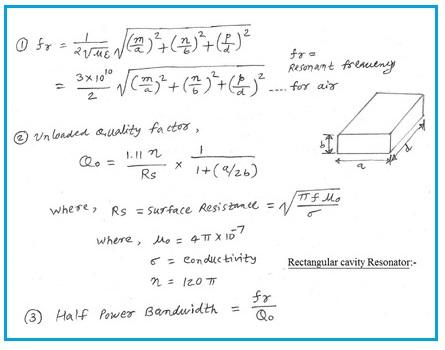 ① fr = 1/(2√με) √((m/a)² + (n/b)² + (p/d)²)
= 3×10¹⁰/2 √((m/a)² + (n/b)² + (p/d)²) .... for air
fr =
Resonant frequency
② Unloaded Quality factor,
Q₀ = 1.11 η/Rs × 1/(1+(a/2b))
b
a
d
where, Rs = Surface Resistance = √(π f μ₀/σ)
where, μ₀ = 4π×10⁻⁷
σ = conductivity
η = 120 π
Rectangular cavity Resonator:-
(3) Half Power Bandwidth = fr/Q₀